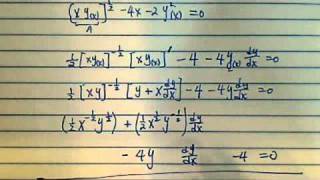 (x y(x))^½ - 4x - 2 y²(x) = 0
½ [x y(x)]^-½ [x y(x)]' - 4 - 4y dy/dx = 0
½ [xy]^-½ [y + x dy/dx] - 4 - 4y dy/dx = 0
(½ x^-½ y^½) + (½ x^½ y^-½) dy/dx
- 4y dy/dx - 4 = 0